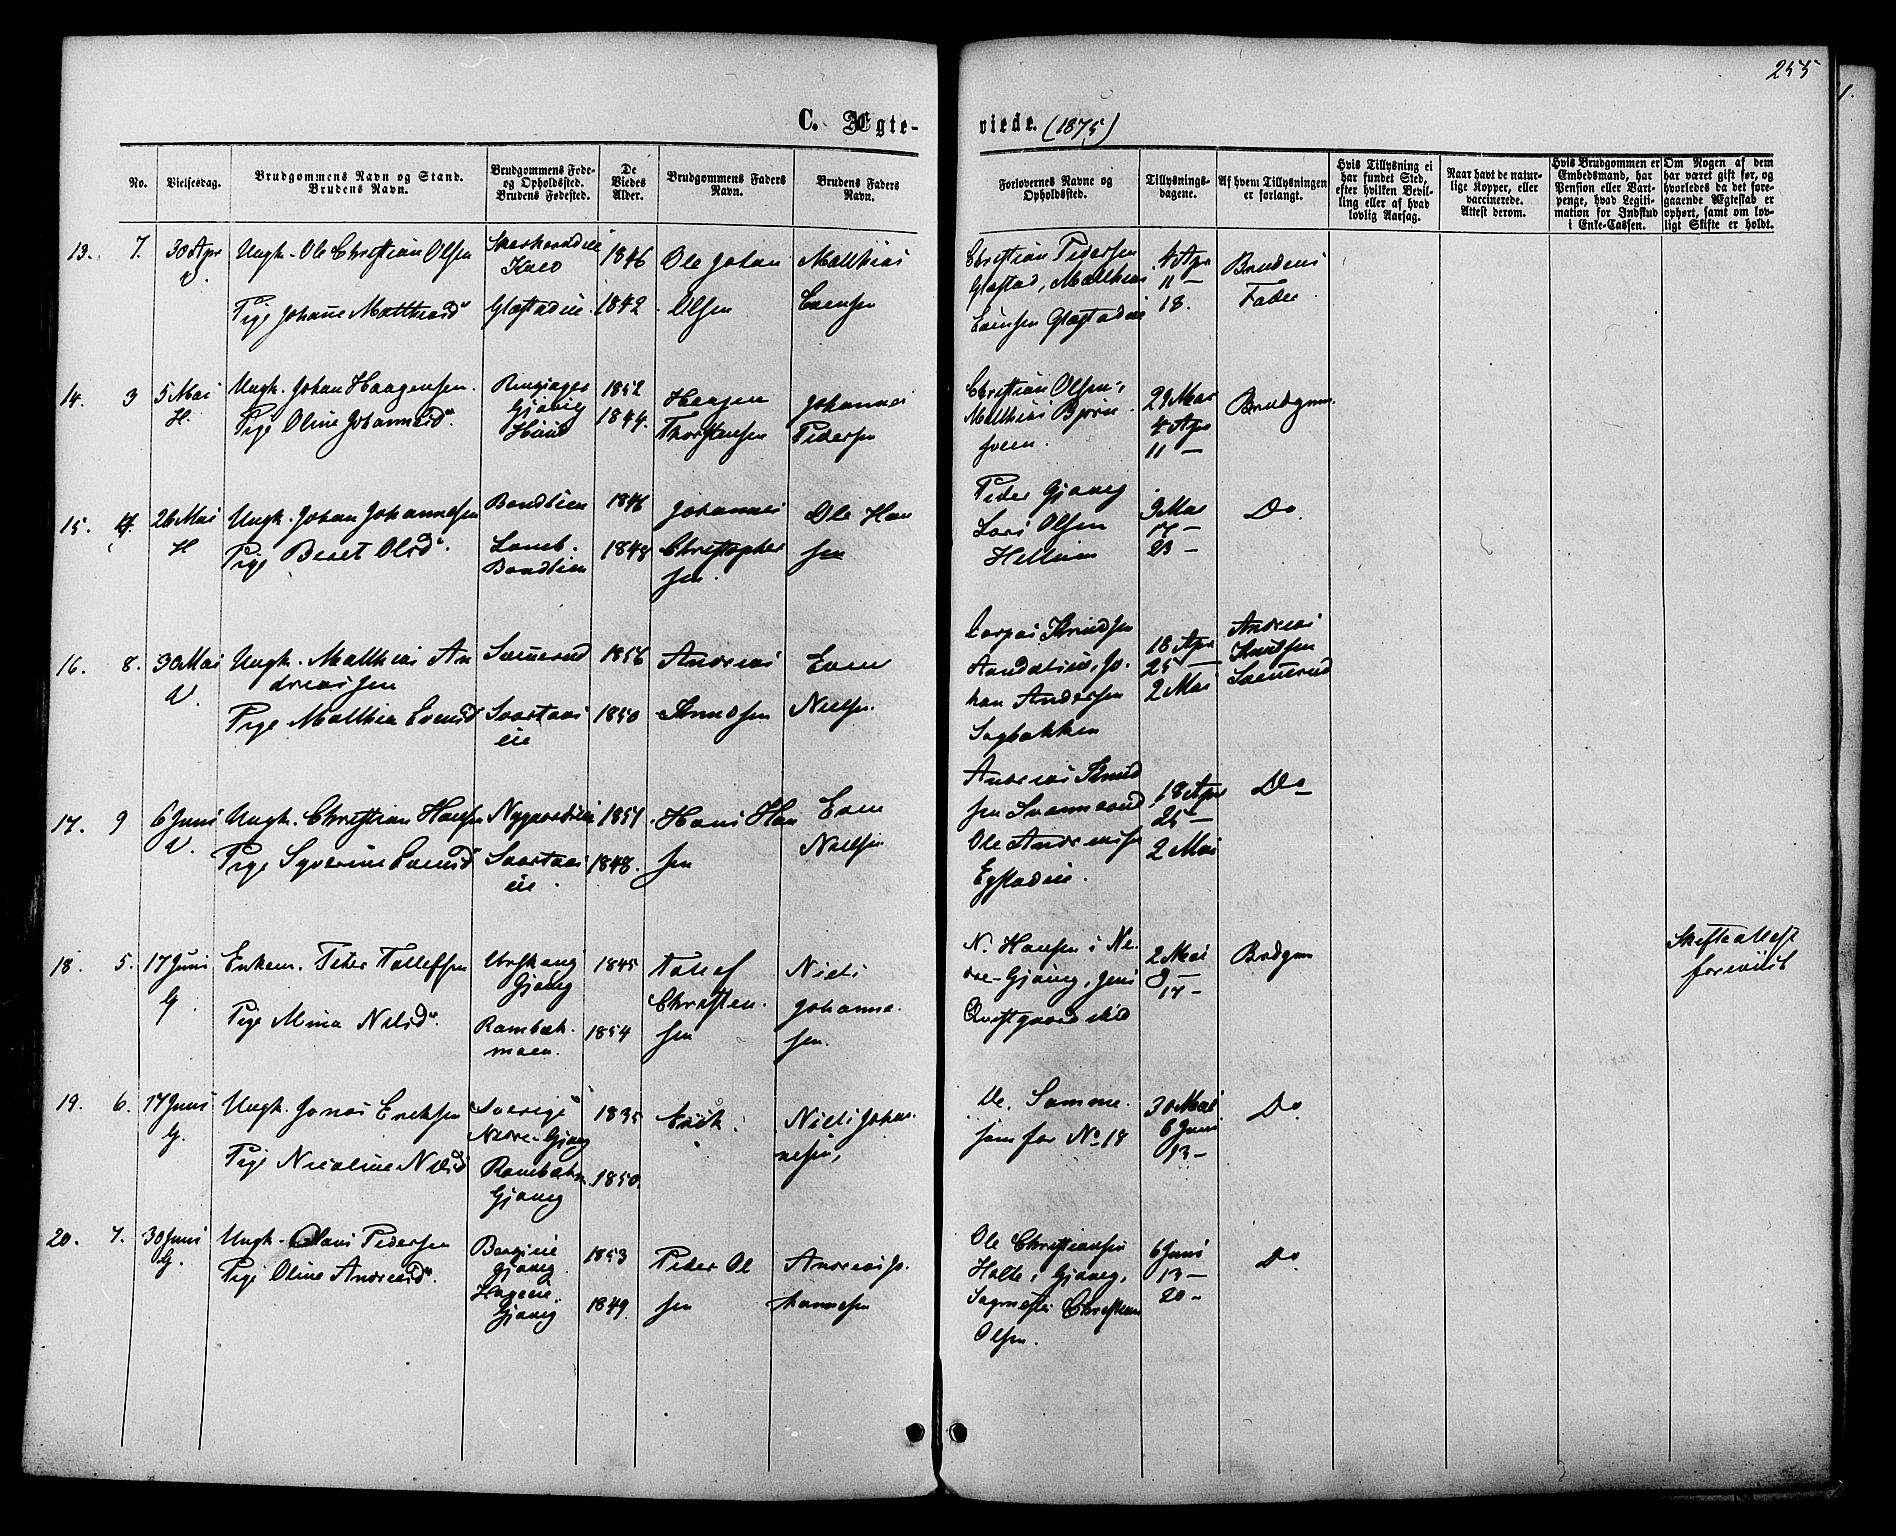 255
C. Ægteviede. (1875)
No.
Vielsesdag.
Brudgommens Navn og Stand.
Brudens Navn.
Brudgommens Føde-
og Opholdssted.
Brudens Fødested.
De
Viedes
Alder.
Brudgommens Faders
Navn.
Brudens Faders
Navn.
Forlovernes Navne og
Opholdssted.
Tillysnings-
dagene.
Af hvem Tillysningen
er forlangt.
Hvis Tillysning ei
har fundet Sted,
efter hvilken Bevil-
ling eller af hvad
lovlig Aarsag.
Naar havt de natur-
lige Kopper, eller
vaccinerede.
Attest derom.
Hvis Brudgommen er
Embedsmand, har
Pension eller Vart-
penge, hvad Legiti-
mation for Indskud
i Enke-Cassen.
Om Nogen af dem
har været gift før, og
hvorledes da det fore-
gaaende Ægteskab er
ophørt, samt om lov-
ligt Skifte er holdt.
13. 7. 30 Apr
V.
Ungk. Ole Christian Olsen
Pige Johane Matthiasd
Glæstadeie
1846
1842
Ole Johan
Olsen
Matthias
Evensen
Christian Pedersen
Glæstad, Matthias
Evensen Glæstadeie
4 Apr
11 —
18.
Brudens
Fader.
14. 3 5 Mai
H.
Ungk. Johan Haagensen
Pige Oline Johannesd.
Gjøvig
1852
1844.
Haagen
Thorstensen
Johannes
Pedersen
Christian Olsen
Matthias Bjørn-
sveen.
29 Mar
4 Apr
11 —
Brudgom.
15. 4. 26 Mai
H
Ungk. Johan Johannesen
Pige Beret Olsd.
Bondlien
Bondlien
1846
1848
Johannes
Christopher
sen.
Ole Han
sen
Peder Gjøvig
Lars Olsen
9 Mai
17 —
23 —
Do
16. 8. 30 Mai
V.
Ungk. Matthias An
dreassen
Pige Mathea Evensd
Svartaas
eie
1856
1850
Andreas
Knudsen
Even
Nielsen.
Knudsen
han Andersen
Sagbakken
18 Apr
25 —
2 Mai
Andreas
Knutsen
17. 9 6 Juni
V.
Ungk. Christian Hansen
Pige Syverine Evensd
Nygaardseie
Svartaas
eie.
1851
1848.
Hans Han
sen
Even
Nielsen
Andreas Knud
sen
Ole Andreassen
Egstadeie.
18 Apr
25 —
2 Mai
Do
18. 5. 17 Juni
G.
Enkem. Peter Tollefsen
Pige Mina Nilsd.
Gjøvig
Rambæk-
moen.
1845
1854
Tollef
Christen-
sen
Niels
Johanne-
sen.
N. Hansen i Ne-
dre-Gjøvig, Jens
2 Mai
9 —
17 —
Brdgm
Skifteattest
foreviist
19. 6. 17 Juni
G.
Ungk. Jonas Eriksen
Pige Nicoline Nilsd
Sverige
Nedre-Gjøvig
Gjøvig
1835
1850.
Erik.
Niels Johan-
nesen,
De Samme
som for No 18
30 Mai
6 Juni
13 —
Do
20. 7. 30 Juni
G.
Ungk. Olaus Pedersen
Pige Oline Andreasd.
Bergseie
Gjøvig
Gjøvig
1853
1849.
Peder Ol
sen
Andreas Jo-
hannesen
Ole Christiansen
Holte i Gjøvig,
Sagmester Christian
Olsen.
6 Juni
13 —
20 —
Do